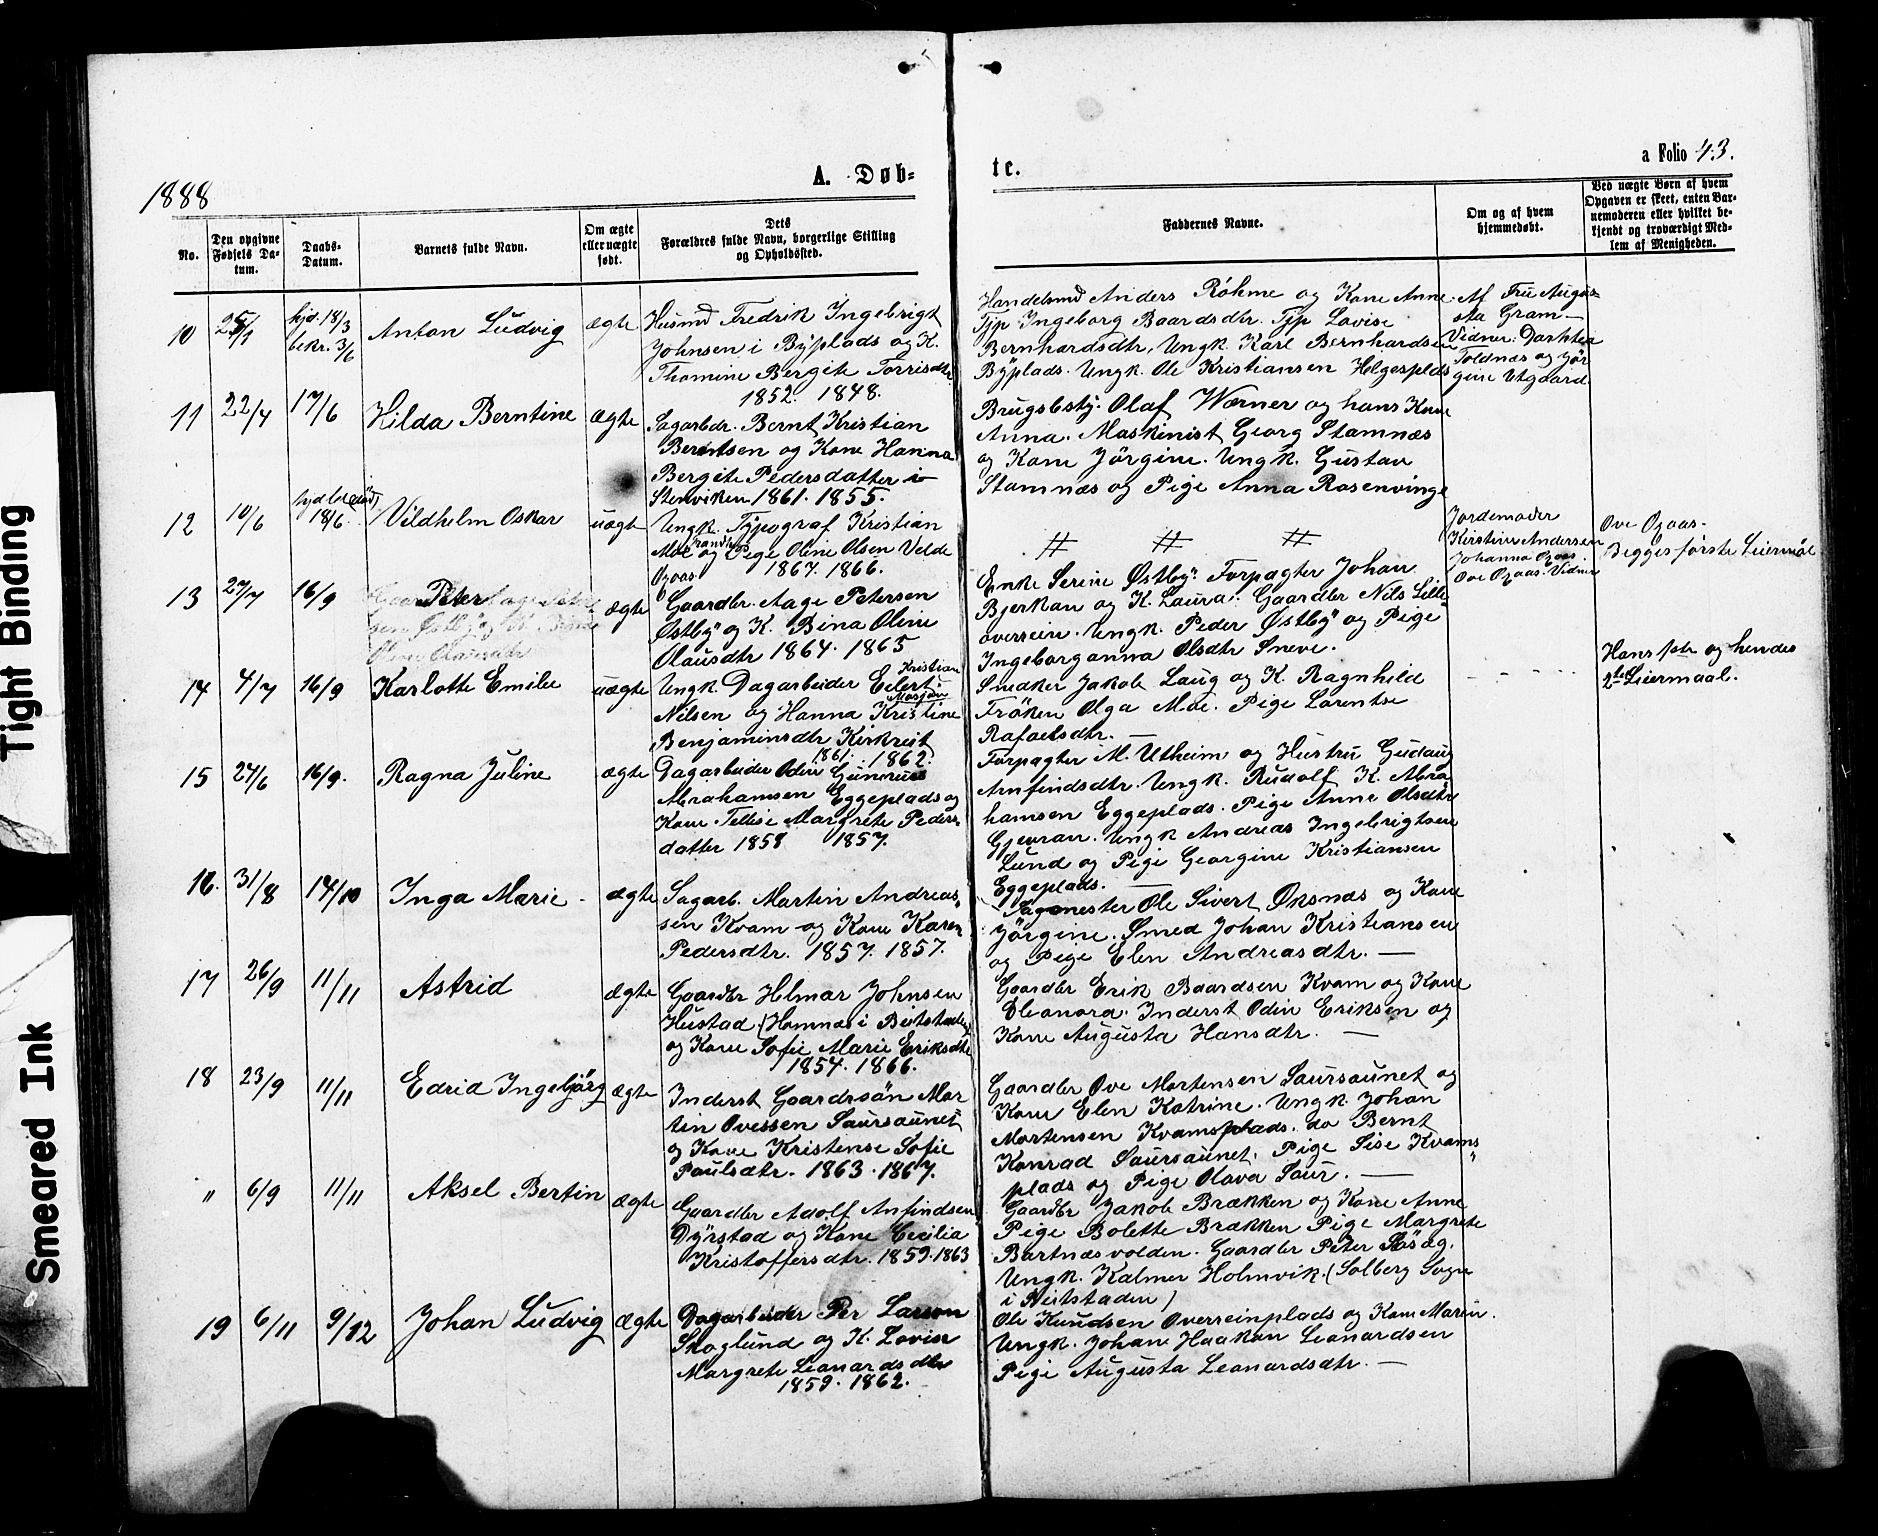 1888
A. Døb-
te.
a Folio 43.
No.
Den opgivne Fødsels Da-
tum.
Daabs-
Datum.
Barnets fulde Navn.
Om ægte
eller uægte
født.
Dets
Forældres fulde Navn, borgerlige Stilling
og Opholdssted.
Faddernes Navne.
Om og af hvem
hjemmedøbt.
Ved uægte Børn af hvem
Opgaven er skeet, enten Bar-
nemoderen eller hvilket be-
kjendt og troværdigt Med-
lem af Menigheden.
10
25/1
hjd. 18/3
bekr. 3/6
Anton Ludvig
ægte
Husmd Fredrik Ingebrigt
Johnsen i Byplads og K.
Thomine Bergite Torrisdtr
1852. 1848.
Handelsmd Anders Röhme og Kone Anne
Tjp Ingeborg Baardsdtr. Tjp Lovise
Bernhardsdtr, Ungk. Karl Bernhardsen
Byplads. Ungk. Ole Kristiansen Helgesplds
Af Fru Augus-
sta Gram
Vidner: Dorthea
Foldnæs og Jør
gine Utgaard
11
22/4
17/6
Hilda Berntine
ægte
Sagarbdr. Bernt Kristian
Berntsen og Kone Hanna
Bergite Pedersdatter i
Stenviken 1861. 1855.
Brugsbsty. Olaf Wærner og hans Kone
Anna. Maskinist Georg Stamnæs
og Kone Jörgine. Ungk. Gustav
Stamnæs og Pige Anna Rosenvinge
12
10/6
18/6
Vildhelm Oskar
uægte
Ungk. Typograf Kristian
Moe og Pige Oline Olsen Velde
Ogaas 1867. 1866.
Jordemoder
Kirstine Andersen
Johanna Ogaas
Ove Ogaas. Vidner
Ove Ogaas.
Begges første Leiermål
13
27/7
16/9
Peter
ægte
Gaardbr. Aage Petersen
Østby og K. Bina Oline
Olausdtr 1864. 1865
Enke Serine Østby. Forpagter Johan
Bjerkan og K. Laura. Gaardbr Nils Lille
overrein. Ungk. Peder Østby og Pige
Ingeborganna Olsdtr Sneve.
14
4/7
16/9
Karlotte Emilie
uægte
Kristian
Ungk. Dagarbeider Edert
Marjan
Nilsen og Hanna Kristine
Benjaminsdtr Kirkreit
1861. 1862.
Snedker Jakob Laug og K. Ragnhild
Frøken Olga Moe. Pige Lorentse
Rafaelsdtr.
Hans 1ste og hendes
2de Leiermaal.
15
24/6
16/9.
Ragna Juline
ægte
Dagarbeider Odin Gunerius
Abrahamsen Eggeplads og
Kone Tellise Margrete Peders-
datter 1858 1857.
Forpagter M. Utheim og Hustru Gudaug
Arnfindsdtr. Ungk. Rudolf K. Abra
hamsen Eggeplads. Pige Anne Olsdtr
Gjevran. Ungk Andreas Ingebrigtsen
Lund og Pige Georgine Kristiansen
Eggeplads.
16.
31/8
14/10
Inga Marie
ægte
Sagarb. Martin Andreas-
sen Kvam og Kone Karen
Pedersdtr. 1857. 1857.
Sagmester Ole Sivert Öksnæs og Kone
Jörgine. Smed Johan Kristiansen
og Pige Elen Andreasdtr.
17
26/9
11/11
Astrid
ægte
Gaardbr Helmar Johnsen
Hustad. (Homnæs i Beitstaden)
og Kone Sofie Marie Eriksdtr
1854. 1866.
Gaardbr Erik Baardsen Kvam og Kone
Eleonora. Inderst Odin Eriksen og
Kone Augusta Hansdtr.
18
23/9
11/11
Edrid Ingebjörg
ægte
Inderst Gaardrsön Mar
tin Ovessen Saursaunet
og Kone Kristense Sofie
Paulsdtr. 1863. 1867.
Gaardbr Ove Mortensen Saursaunet og
Kone Elen Katrine. Ungk. Johan
Mortensen Kvamsplads. do Bernt
Konrad Saursaunet. Pige Lise Kvams
plads og Pige Olava Saur.
"
6/9
11/11
Aksel Bertin
ægte
Gaardbr Adolf Anfindsen
Dyrstad og Kone Cecilia
Kristoffersdtr. 1859. 1863
Gaardbr Jakob Brækken og Kone Anne
Pige Bolette Brækken Pige Margrete
Bartnæsvolden. Gaardbr Peter Røsæg.
Ungk. Kalmer Holmvik (Solberg Sogn
i Beitstaden)
19
6/11
9/12
Johan Ludvig
ægte
Dagarbeider Per Larson
Skoglund og K. Lovise
Margrete Leonardsdtr
1859. 1862.
Ole Knudsen Overreinplads og Kone Marin.
Ungk. Johan Haakon Leonardsen
Pige Augusta Leonardsdtr.
Tight Binding
Smeared Ink